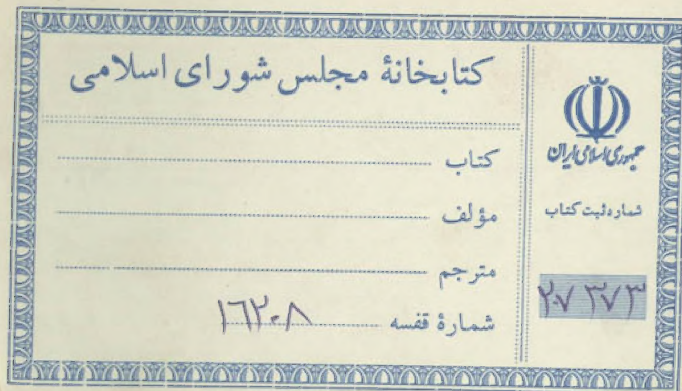 کتابخانهٔ مجلس شورای اسلامی
کتاب
مؤلف
مترجم
شمارهٔ قفسه ۱۶۲۰۸
جمهوری اسلامی ایران
شماره ثبت کتاب
۲۰۷۳۷۳